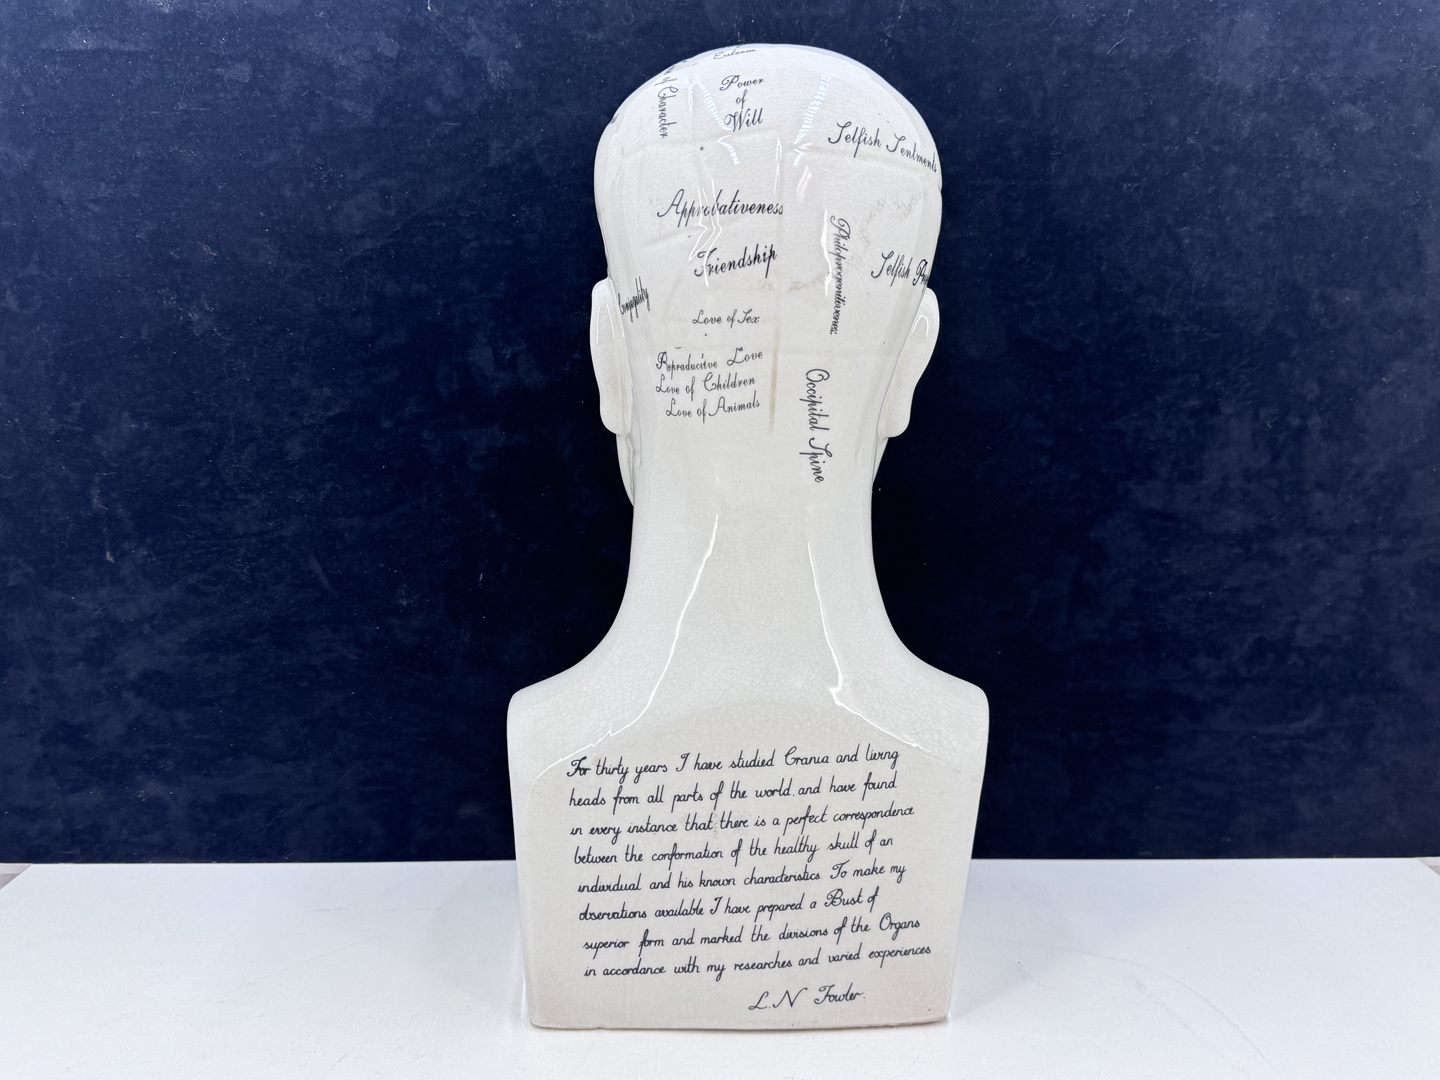 Esteem
Power
of
Will
of Character
Selfish Sentments
Approbativeness
Friendship
Philoprogenitiveness
Selfish
Conjugality
Love of Sex
Reproducive Love
Love of Children
Love of Animals
Occipital Spine
For thirty years I have studied Crania and living
heads from all parts of the world, and have found
in every instance that there is a perfect correspondence
between the conformation of the healthy skull of an
individual and his known characteristics. To make my
observations available I have prepared a Bust of
superior form and marked the divisions of the Organs
in accordance with my researches and varied experiences
L.N Fowler.